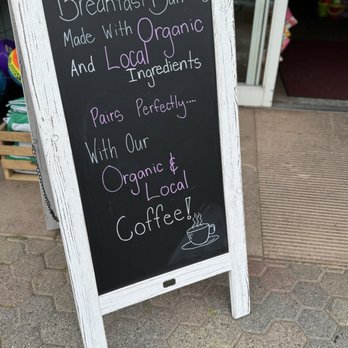 Breakfast
Made With Organic
And Local
Ingredients
Pairs Perfectly....
With Our
Organic &
Local
Coffee!